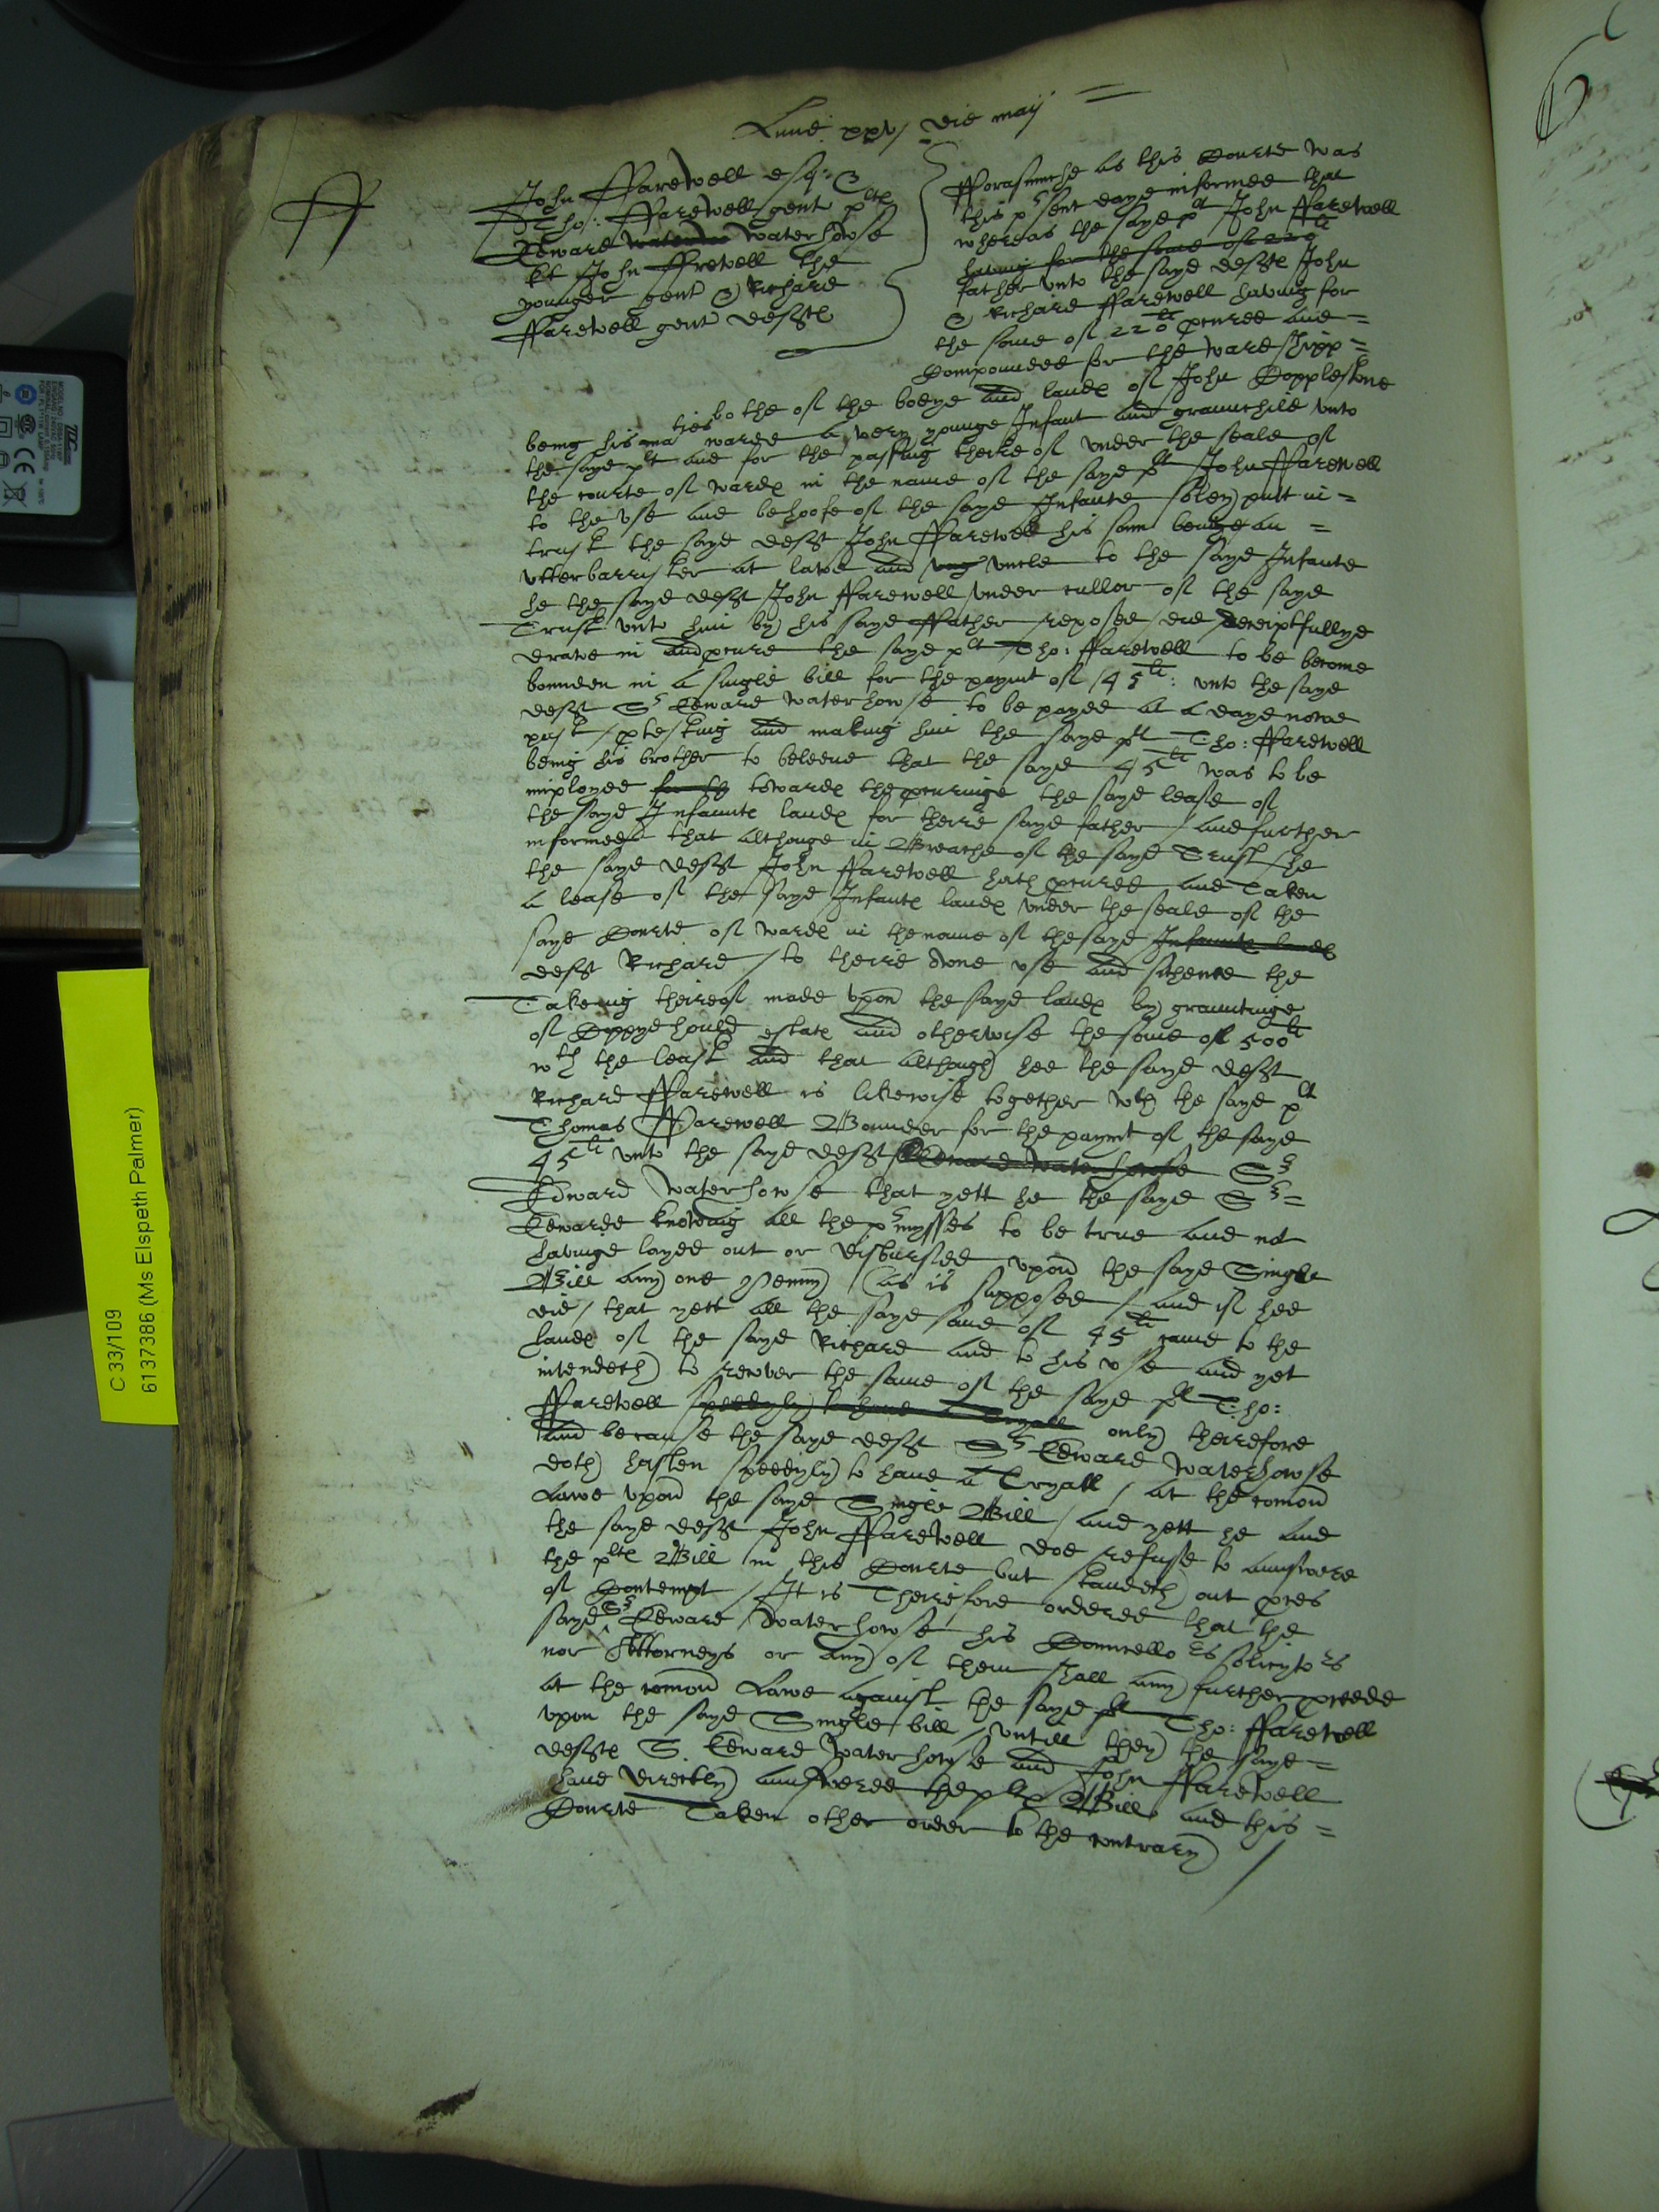 Lune xxv die maij
John Farewell esqr &
Tho: Farewell gent plts
Edward waterhowse
kt John Frewell the
younger gent & Richard
Farewell gent defts
Forasmuche as this Courte was
this psent daye informed that
whereas the sayd plt John Farewell
having for the some of 220li
father unto the sayd defts John
& Richard Farewell having for
the some of 220li pcured and =
Compounded for the wardshipp =
bothe of the bodye and landes of John Copplestone
being his maties warde a very younge Infant and graunchild unto
the sayd plt and for the passing thereof under the seale of
the courte of wardes in the name of the sayd plt John Farewell
to the use and behoofe of the sayd Infante soley putt in =
trust the sayd deft John Farewell his sonn beinge an =
utterbarrister at lawe and uncle to the sayd Infante
he the sayd deft John Farewell under cullor of the sayd
Trust unto him by his sayd Father reposed did deceiptfullye
drawe in and pcure the sayd plt Tho: Farewell to be become
bounden in a single bill for the paymt of 45li: unto the sayd
deft Sr Edward waterhowse to be payed at a daye nowe
past ptesting and making him the sayd plt Tho: Farewell
being his brother to beleeve that the sayd 45li was to be
imployed towardes the pcuringe the sayd lease of
the sayd Infantes landes for theire sayd father and further
informed that althouge in Breache of the sayd Trust he
the sayd deft John Farewell hath pcured and Taken
a lease of the sayd Infantes landes under the seale of the
sayd Courte of wardes in the name of the sayd Infantes landes
deft Richard to theire owne use and sithence the
Takeing thereof made upon the sayd landes by grauntinge
of Coppyehould estates and otherwise the some of 500li
wth the least and that although hee the sayd deft
Richard Farewell is likewise together wth the sayd plt
Thomas Farewell Bounden for the paymt of the sayd
45li unto the sayd deft Edward waterhowse Sr
Edward waterhowse that yett he the sayd Sr =
Edwarde knowing all the pmysses to be true and not
havinge layed out or disbursed upon the sayd Single
Bill any one penny (as is supposed and if hee
did that yett all the sayd some of 45li came to the
handes of the sayd Richard and to his use and yet
intendeth to recover the same of the sayd plt Tho:
Farewell speedyly to have a Tryall only therefore
and because the sayd deft Sr Edward Waterhowse
doth hasten speedyly to have a Tryall at the comon
Lawe upon the sayd Single Bill and yett he and
the sayd deft John Farewell doe refuse to aunswere
the plts Bill in this Courte but standeth out pces
of Contempt It is Therefore ordered that the
sayd Sr Edward Waterhowse his Councellors solicytors
nor Attorneys or any of them shall any further pceede
at the comon Lawe against the sayd plt Tho: Farewell
upon the sayd Single bill untill they the sayd =
defts S. Edward Waterhowse and John Farewell
have directly aunswered the plts Bill and this =
Courte Taken other order to the contrary
C 33/109
6137386 (Ms Elspeth Palmer)